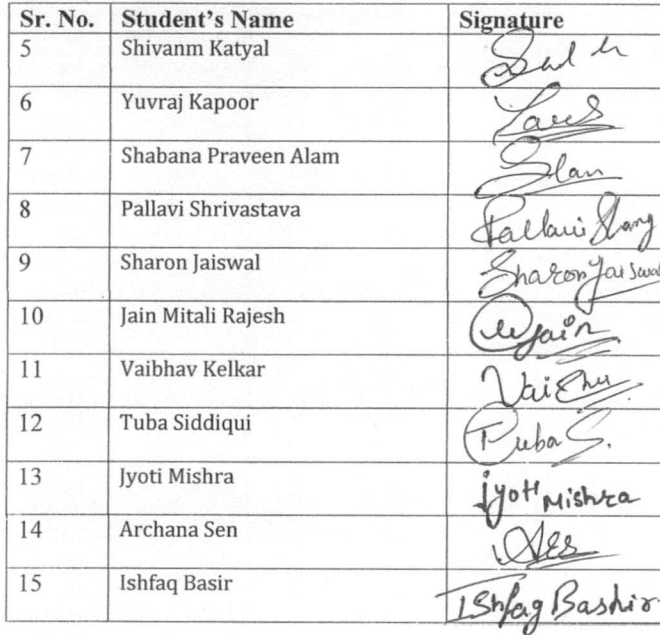 Sr. No. Student's Name Signature
5 Shivanm Katyal
6 Yuvraj Kapoor
7 Shabana Praveen Alam
8 Pallavi Shrivastava Pallavi
9 Sharon Jaiswal Sharon Jaiswal
10 Jain Mitali Rajesh Jain
11 Vaibhav Kelkar
12 Tuba Siddiqui Tuba S.
13 Jyoti Mishra Jyoti Mishra
14 Archana Sen
15 Ishfaq Basir Ishfaq Bashir